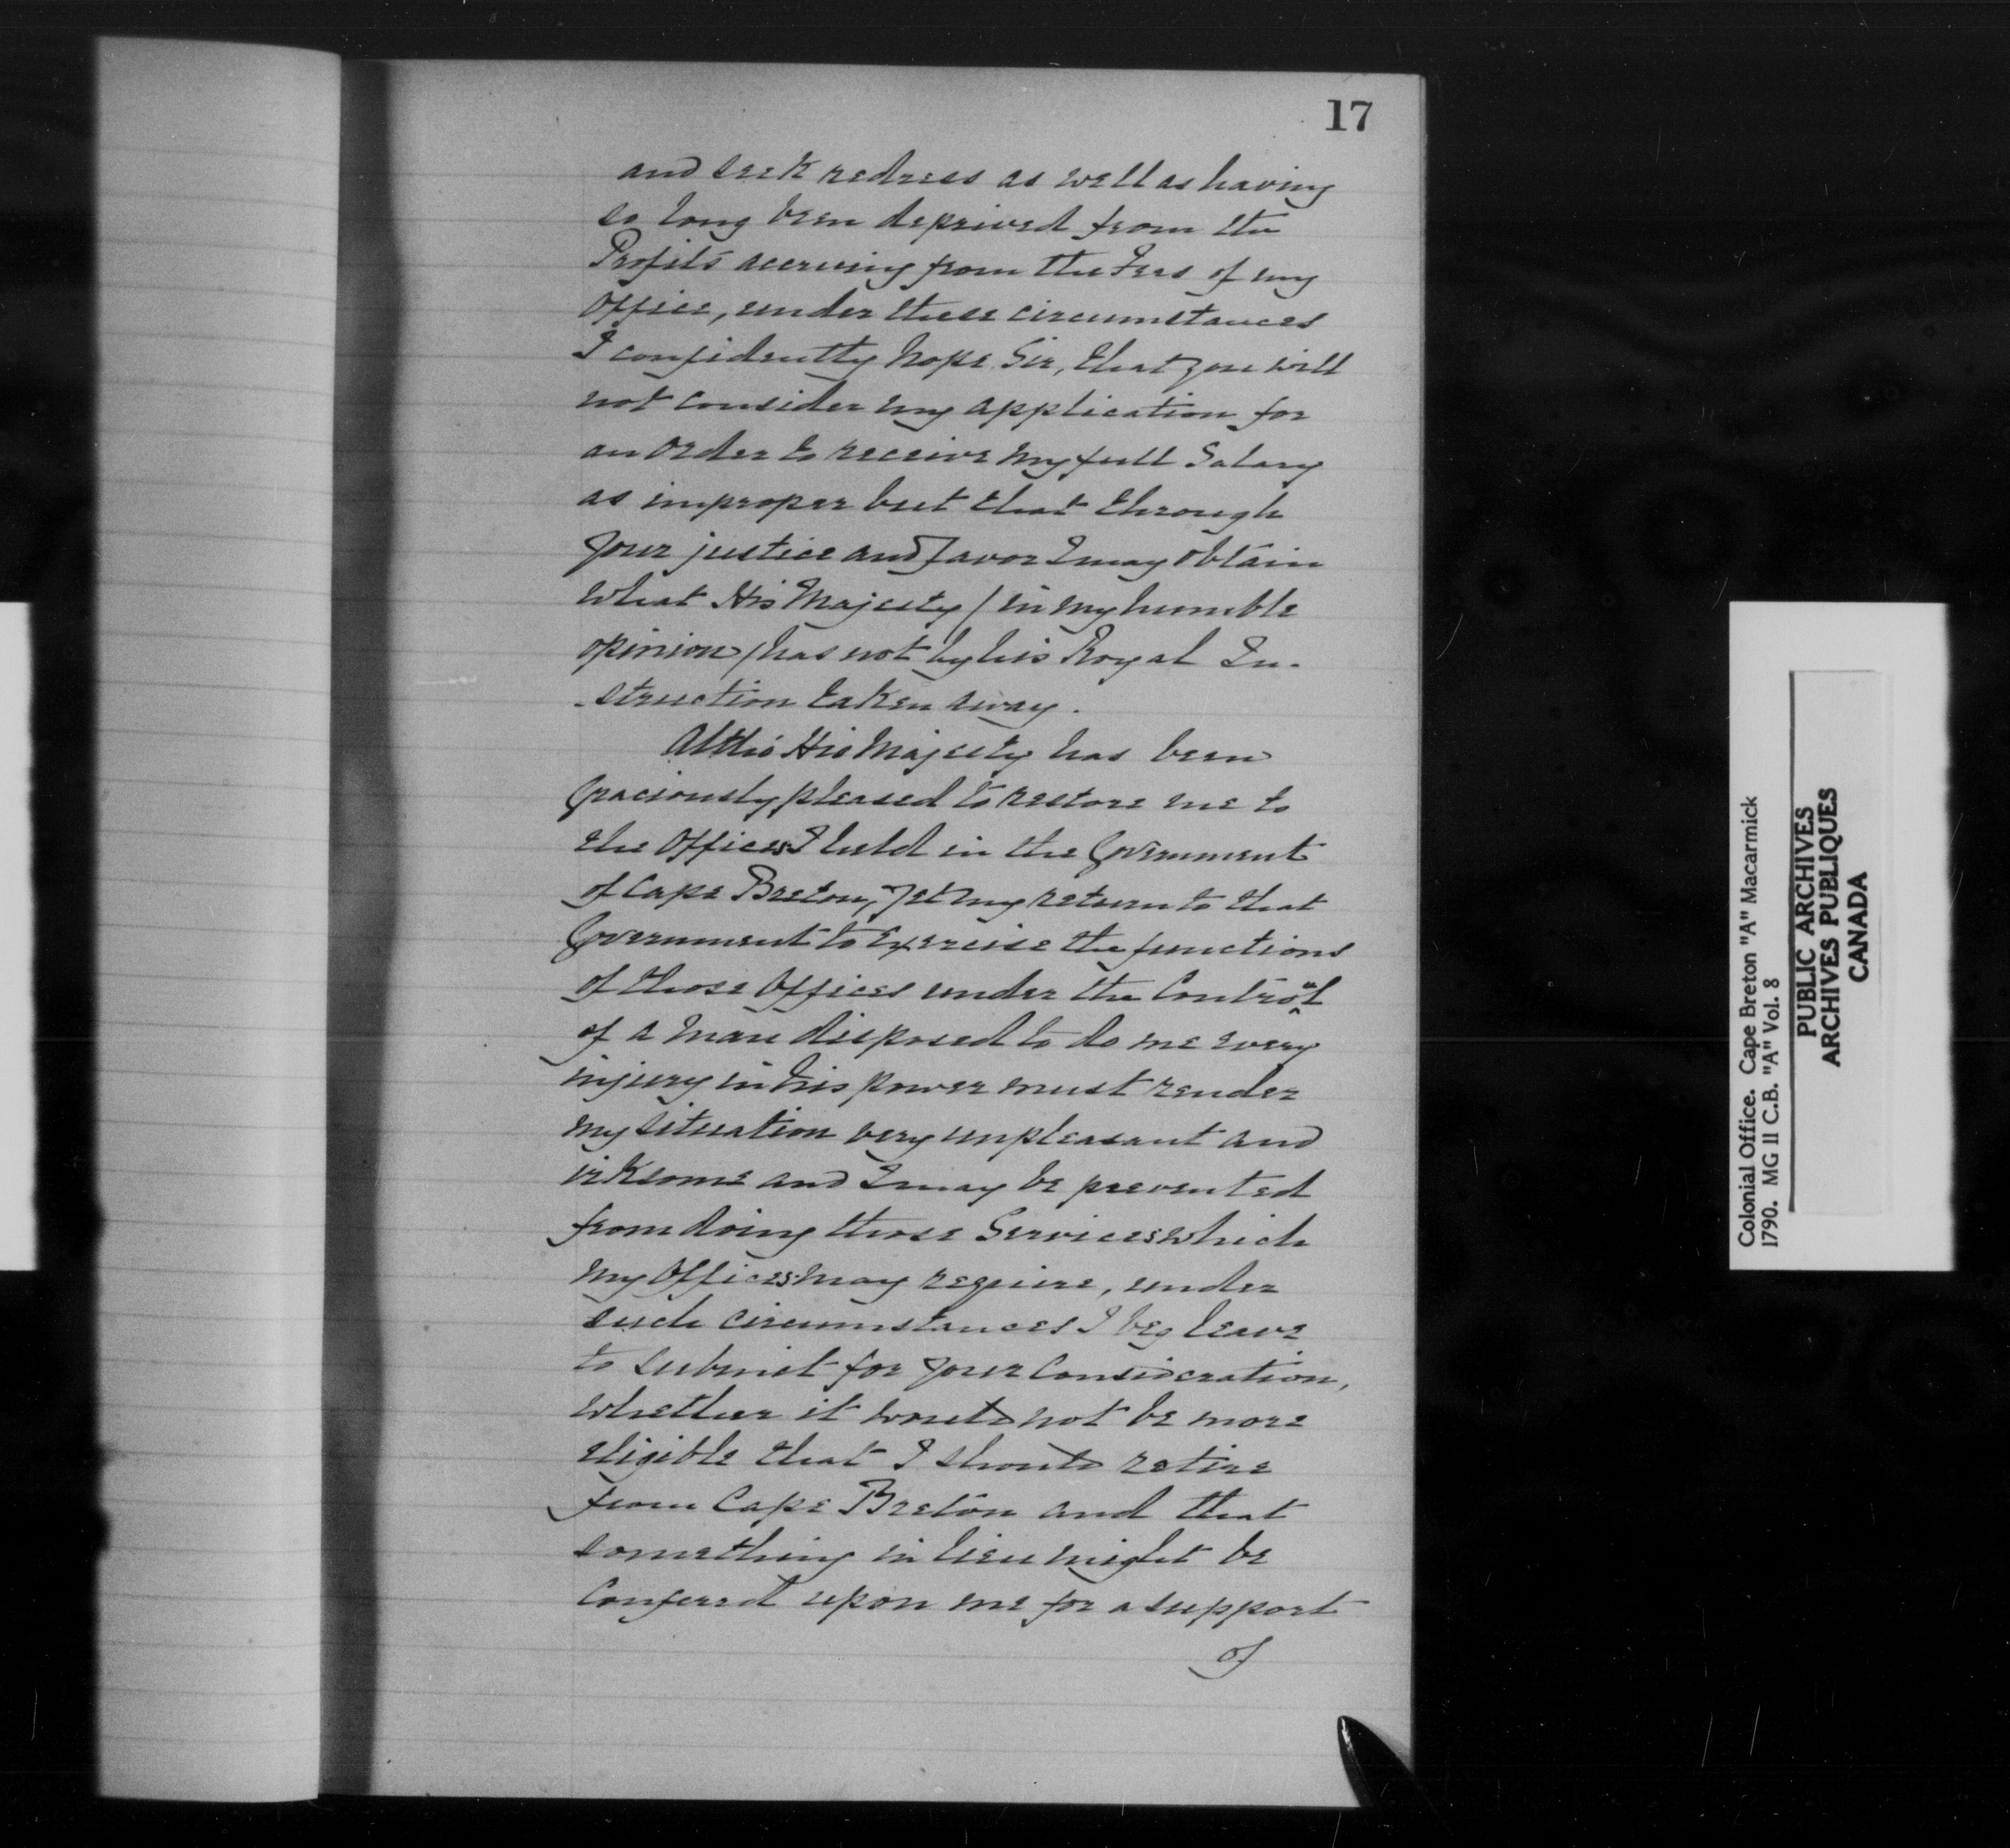 17
and seek redress as well as having
so long been deprived from the
Profits accruing from the Fees of my
Office, under these circumstances
I confidently hope Sir, that you will
not consider my application for
an order to receive my full Salary
as improper but that through
your justice and favor I may obtain
what His Majesty (in my humble
opinion) has not by his Royal In-
-struction taken away.
Altho' His Majesty has been
Graciously pleased to restore me to
the Offices I held in the Government
of Cape Breton, yet my return to that
Government to Exercise the functions
of those Offices under the Controul
of a man disposed to do me every
injury in his power must render
my situation very unpleasant and
irksome and I may be prevented
from doing those Services which
my Offices may require, under
such circumstances I beg leave
to submit for your Consideration,
whether it would not be more
eligible that I should retire
from Cape Breton and that
something in lieu might be
Conferred upon me for a support
of
Colonial Office. Cape Breton "A" Macarmick
1790. MG 11 C.B. "A" Vol. 8
PUBLIC ARCHIVES
ARCHIVES PUBLIQUES
CANADA